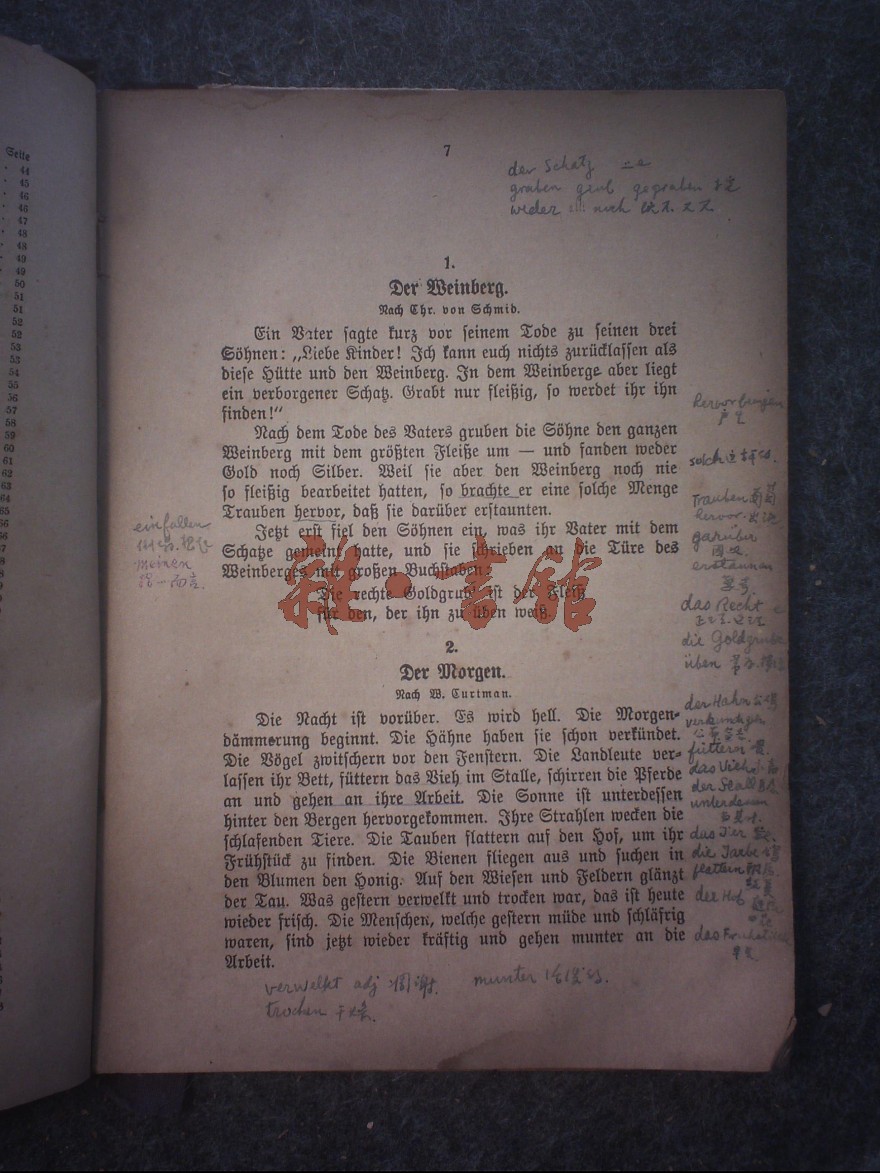 Seite
44
45
46
46
47
48
48
49
49
50
51
51
52
52
53
53
54
55
56
57
58
59
60
61
62
63
64
65
7
der Schatz ⸗e
graben grub gegraben
weder noch
1.
Der Weinberg.
Nach Chr. von Schmid.
Ein Vater sagte kurz vor seinem Tode zu seinen drei
Söhnen: „Liebe Kinder! Ich kann euch nichts zurücklassen als
diese Hütte und den Weinberg. In dem Weinberge aber liegt
ein verborgener Schatz. Grabt nur fleißig, so werdet ihr ihn
finden!“
Nach dem Tode des Vaters gruben die Söhne den ganzen
Weinberg mit dem größten Fleiße um — und fanden weder
Gold noch Silber. Weil sie aber den Weinberg noch nie
so fleißig bearbeitet hatten, so brachte er eine solche Menge
Trauben hervor, daß sie darüber erstaunten.
Jetzt erst fiel den Söhnen ein, was ihr Vater mit dem
Schatze gemeint hatte, und sie schrieben an die Türe des
Weinberges mit großen Buchstaben:
Die rechte Goldgrub' ist der Fleiß
für den, der ihn zu üben weiß.
雜·書館
einfallen
meinen
hervorbringen
solch
Trauben
hervor
darüber
erstaunen
das Recht
die Goldgrube
üben
2.
Der Morgen.
Nach W. Curtman.
Die Nacht ist vorüber. Es wird hell. Die Morgen⸗
dämmerung beginnt. Die Hähne haben sie schon verkündet.
Die Vögel zwitschern vor den Fenstern. Die Landleute ver⸗
lassen ihr Bett, füttern das Vieh im Stalle, schirren die Pferde
an und gehen an ihre Arbeit. Die Sonne ist unterdessen
hinter den Bergen hervorgekommen. Ihre Strahlen wecken die
schlafenden Tiere. Die Tauben flattern auf den Hof, um ihr
Frühstück zu finden. Die Bienen fliegen aus und suchen in
den Blumen den Honig. Auf den Wiesen und Feldern glänzt
der Tau. Was gestern verwelkt und trocken war, das ist heute
wieder frisch. Die Menschen, welche gestern müde und schläfrig
waren, sind jetzt wieder kräftig und gehen munter an die
Arbeit.
der Hahn
füttern
das Vieh
der Stall
das Tier
flattern
der Hof
verwelkt adj 凋謝. munter
trocken 干燥.